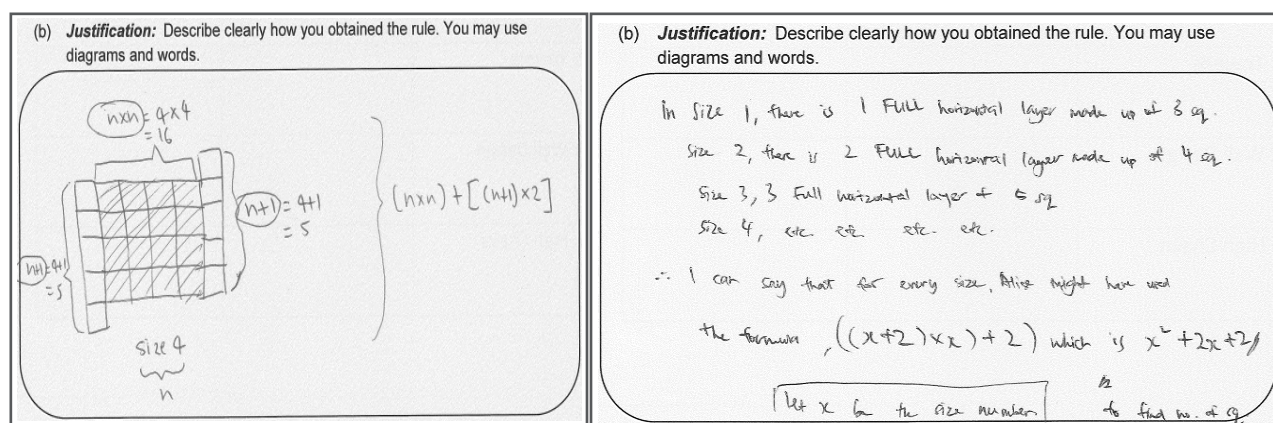 (b) Justification: Describe clearly how you obtained the rule. You may use
diagrams and words.
n×n = 4×4
= 16
n+1 = 4+1
= 5
(n×n) + [(n+1)×2]
n+1 = 4+1
= 5
size 4
n
(b) Justification: Describe clearly how you obtained the rule. You may use
diagrams and words.
In size 1, there is 1 FULL horizontal layer made up of 3 sq.
size 2, there is 2 FULL horizontal layer made up of 4 sq.
Size 3, 3 Full horizontal layer of 5 sq
Size 4, etc. etc. etc. etc.
∴ I can say that for every size, Alice might have used
the formula, ((x+2)×x)+2) which is x²+2x+2
Let x be the size number
to find no. of sq.